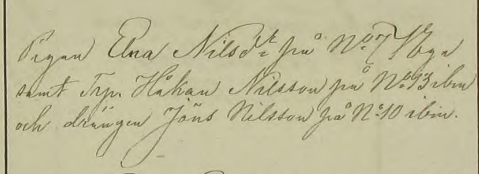 Pigan Elna Nilsdr på No 7
samt Trp. Håkan Nilsson på No 13 ibm
och drängen Jöns Nilsson på No 10 ibm.